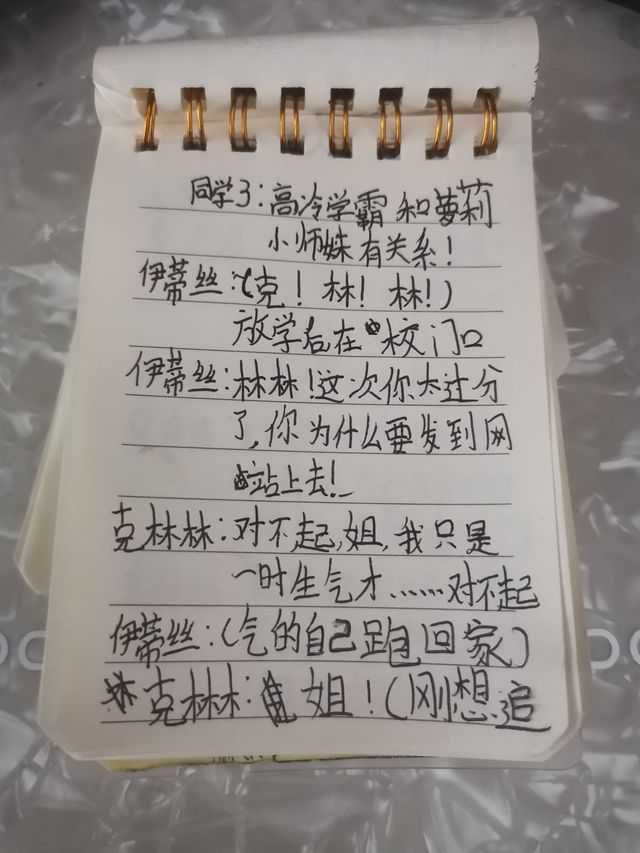 同学3:高冷学霸和萝莉
小师妹有关系!
伊蒂丝:(克!林!林!)
放学后在校门口
伊蒂丝:林林!这次你太过分
了,你为什么要发到网
站上去!
克林林:对不起,姐,我只是
一时生气才……对不起
伊蒂丝:(气的自己跑回家)
克林林:姐!(刚想追